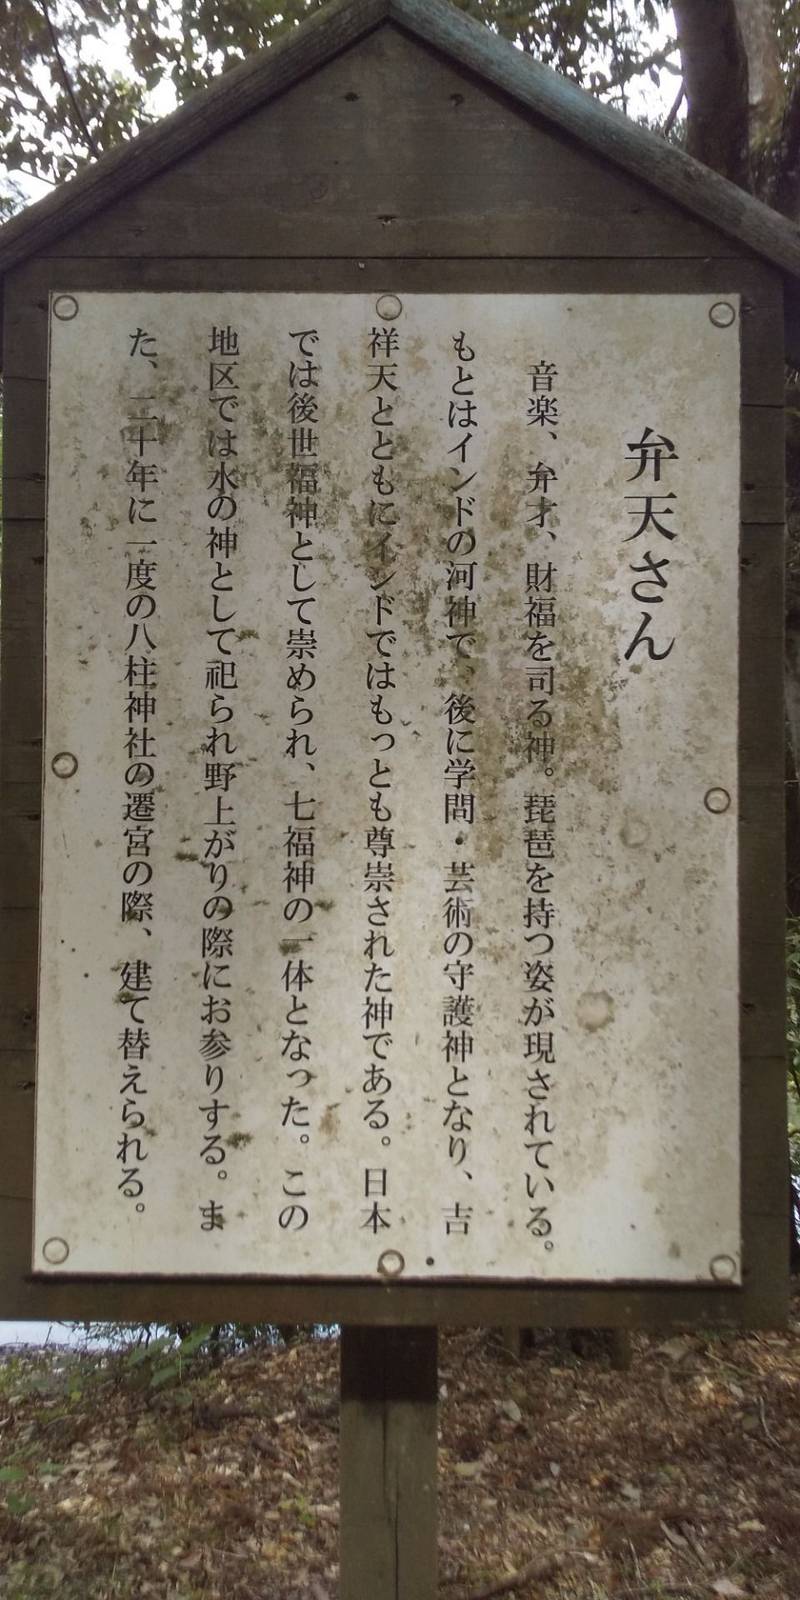 弁天さん
音楽、弁才、財福を司る神。琵琶を持つ姿が現されている。
もとはインドの河神で、後に学問・芸術の守護神となり、吉
祥天とともにインドではもっとも尊崇された神である。日本
では後世福神として崇められ、七福神の一体となった。この
地区では水の神として祀られ野上がりの際にお参りする。ま
た、二十年に一度の八柱神社の遷宮の際、建て替えられる。